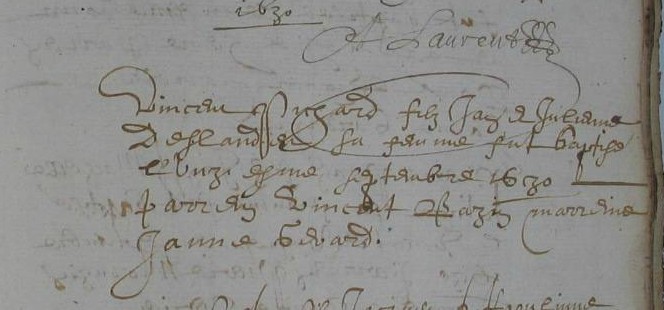 1630
Laurent
Vincent Richard filz Jaq et Julienne
Deslandes sa femme fut baptisé
l'unziesme septembre 1630
parrein Vincent Bazin marreine
Janne Evard.